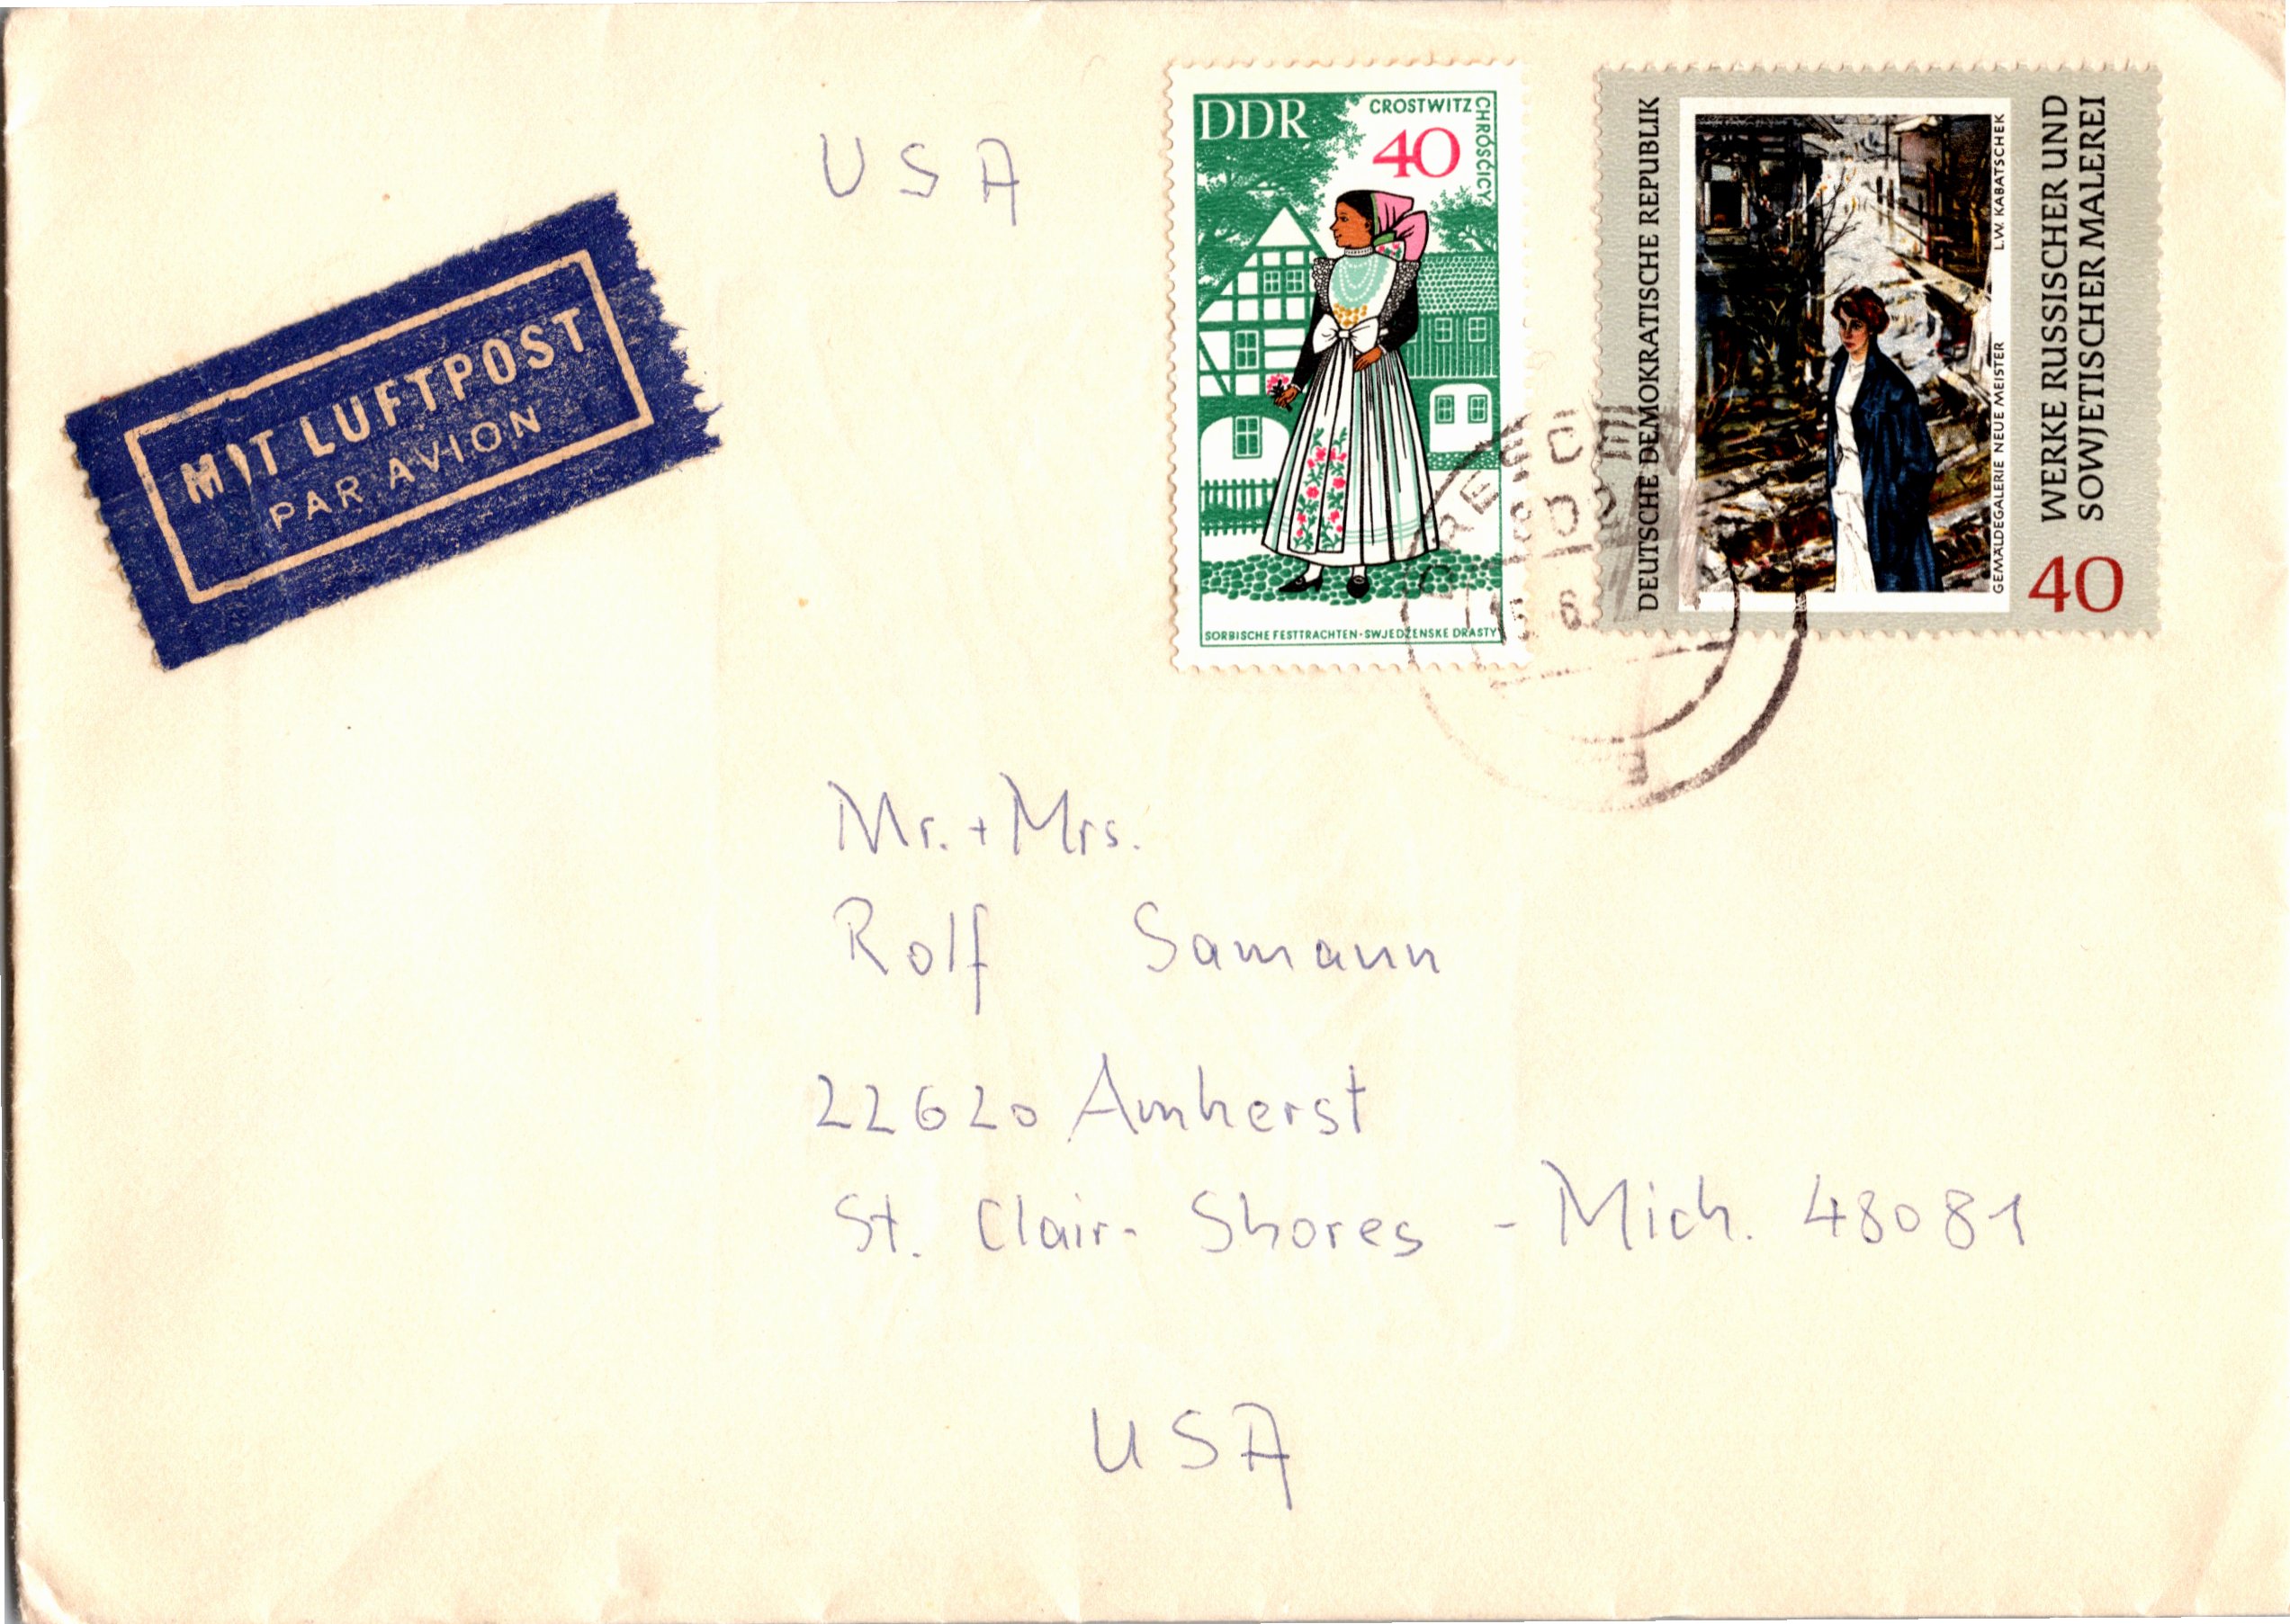 USA
MIT LUFTPOST
PAR AVION
DDR
CROSTWITZ
CHRÓSĆICY
40
SORBISCHE FESTTRACHTEN · SWJEDŹENSKE DRASTY
DEUTSCHE DEMOKRATISCHE REPUBLIK
GEMÄLDEGALERIE NEUE MEISTER L.W. KABATSCHEK
WERKE RUSSISCHER UND
SOWJETISCHER MALEREI
40
DRESDEN
Mr. + Mrs.
Rolf Samann
22620 Amherst
St. Clair- Shores - Mich. 48081
USA